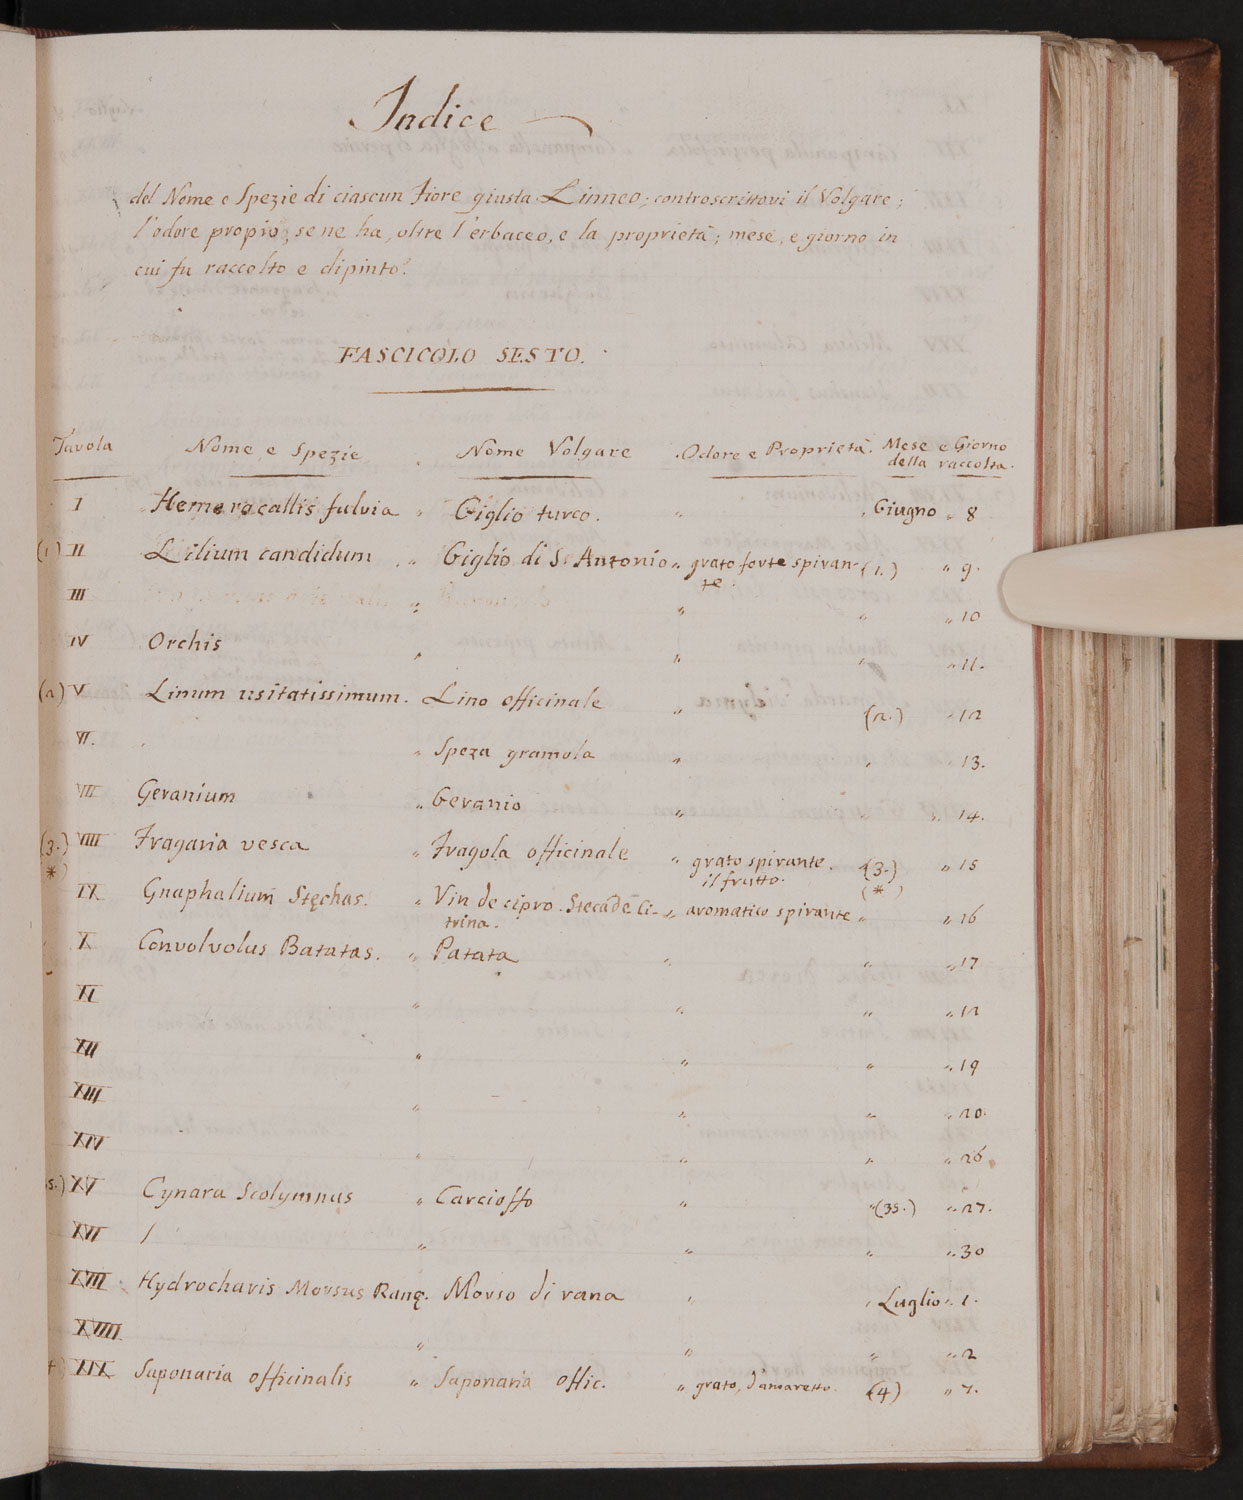 Indice
del Nome e Spezie di ciascun Fiore giusta Linneo; controscrittovi il Volgare;
l'odore propio, se ne ha, oltre l'erbaceo, e la proprietà; mese, e giorno in
cui fu raccolto e dipinto.
FASCICOLO SESTO.
Tavola Nome e Spezie Nome Volgare Odore e Proprietà Mese e Giorno
della raccolta.
I Hemerocallis fulvia " Giglio turco. " " Giugno " 8
(1) II Lilium candidum " Giglio di S. Antonio " grato forte spiran- (1.) " 9.
te.
III " " " " 10
IV Orchis " " " " 11.
(2) V Linum usitatissimum. Lino officinale " (2.) " 12
VI. " Speza gramola " " " 13.
VII Geranium " Geranio " " 14.
(3.) VIII Fragaria vesca " Fragola officinale " grato spirante. (3.) " 15
(*) il frutto. (*)
IX Gnaphalium Stęchas. " Vin de cipro. Stecade Ci- " aromatico spirante " " 16
trina.
X Convolvolus Batatas. " Patata " " " 17
XI " " " " 12
XII " " " " 19
XIII " " " " 20.
XIV " " " " 26
XV Cynara Scolymnus " Carcioffo " "(35.) " 27.
XVI " " " " 30
XVII Hydrocharis Morsus Ranę. Morso di rana " " Luglio " 1.
XVIII " " " " 2
XIX Saponaria officinalis " Saponaria offic. " grato, d'amaretto. (4) " 7.